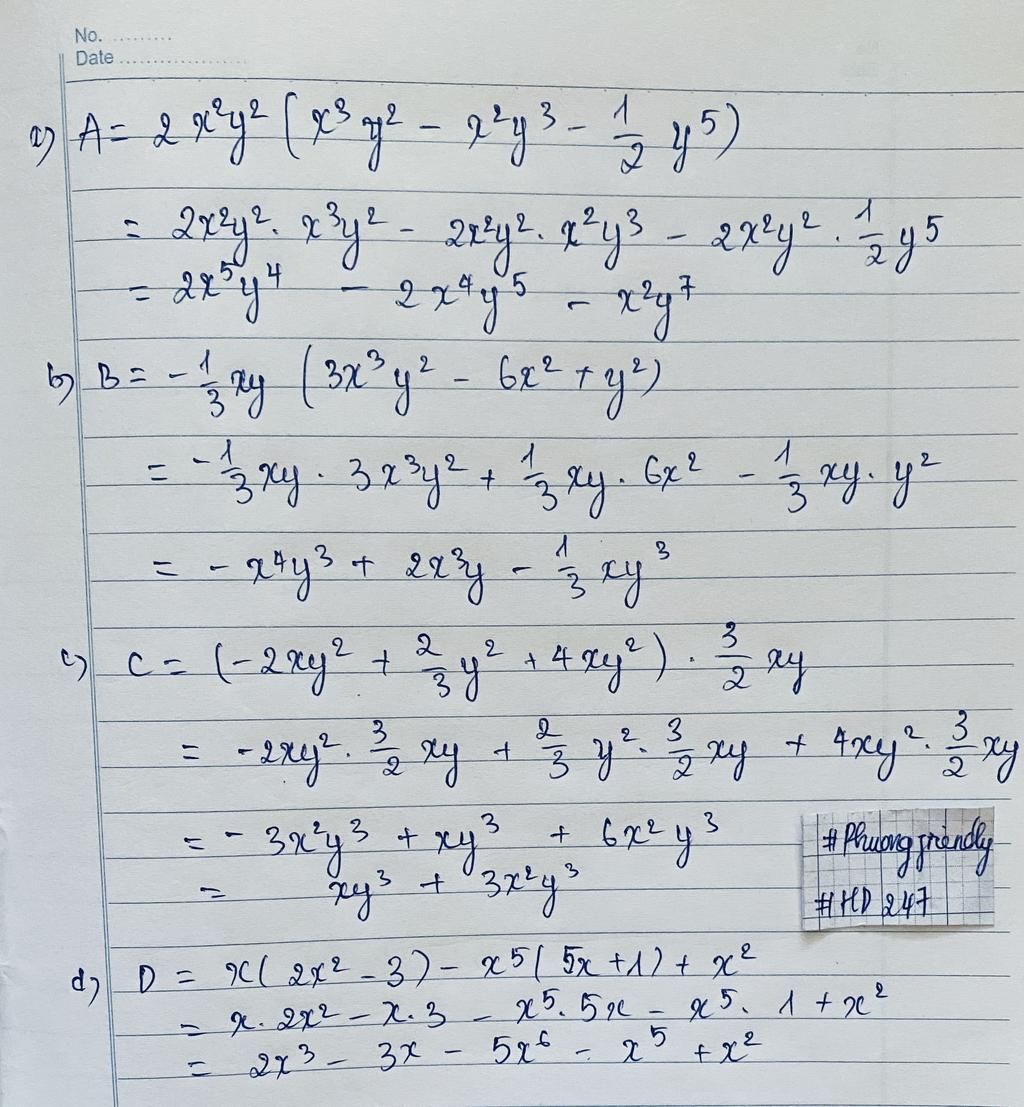 No. ..........
Date ...................
a) A = 2x²y² (x³y² - x²y³ - 1/2 y⁵)
= 2x²y² . x³y² - 2x²y² . x²y³ - 2x²y² . 1/2 y⁵
= 2x⁵y⁴ - 2x⁴y⁵ - x²y⁷
b) B = -1/3 xy (3x³y² - 6x² + y²)
= -1/3 xy . 3x³y² + 1/3 xy . 6x² - 1/3 xy . y²
= - x⁴y³ + 2x³y - 1/3 xy³
c) C = (-2xy² + 2/3 y² + 4xy²) . 3/2 xy
= -2xy² . 3/2 xy + 2/3 y² . 3/2 xy + 4xy² . 3/2 xy
= - 3x²y³ + xy³ + 6x²y³
= xy³ + 3x²y³
#Phuongfriendly
#HD 247
d) D = x(2x² - 3) - x⁵(5x + 1) + x²
= x . 2x² - x . 3 - x⁵ . 5x - x⁵ . 1 + x²
= 2x³ - 3x - 5x⁶ - x⁵ + x²